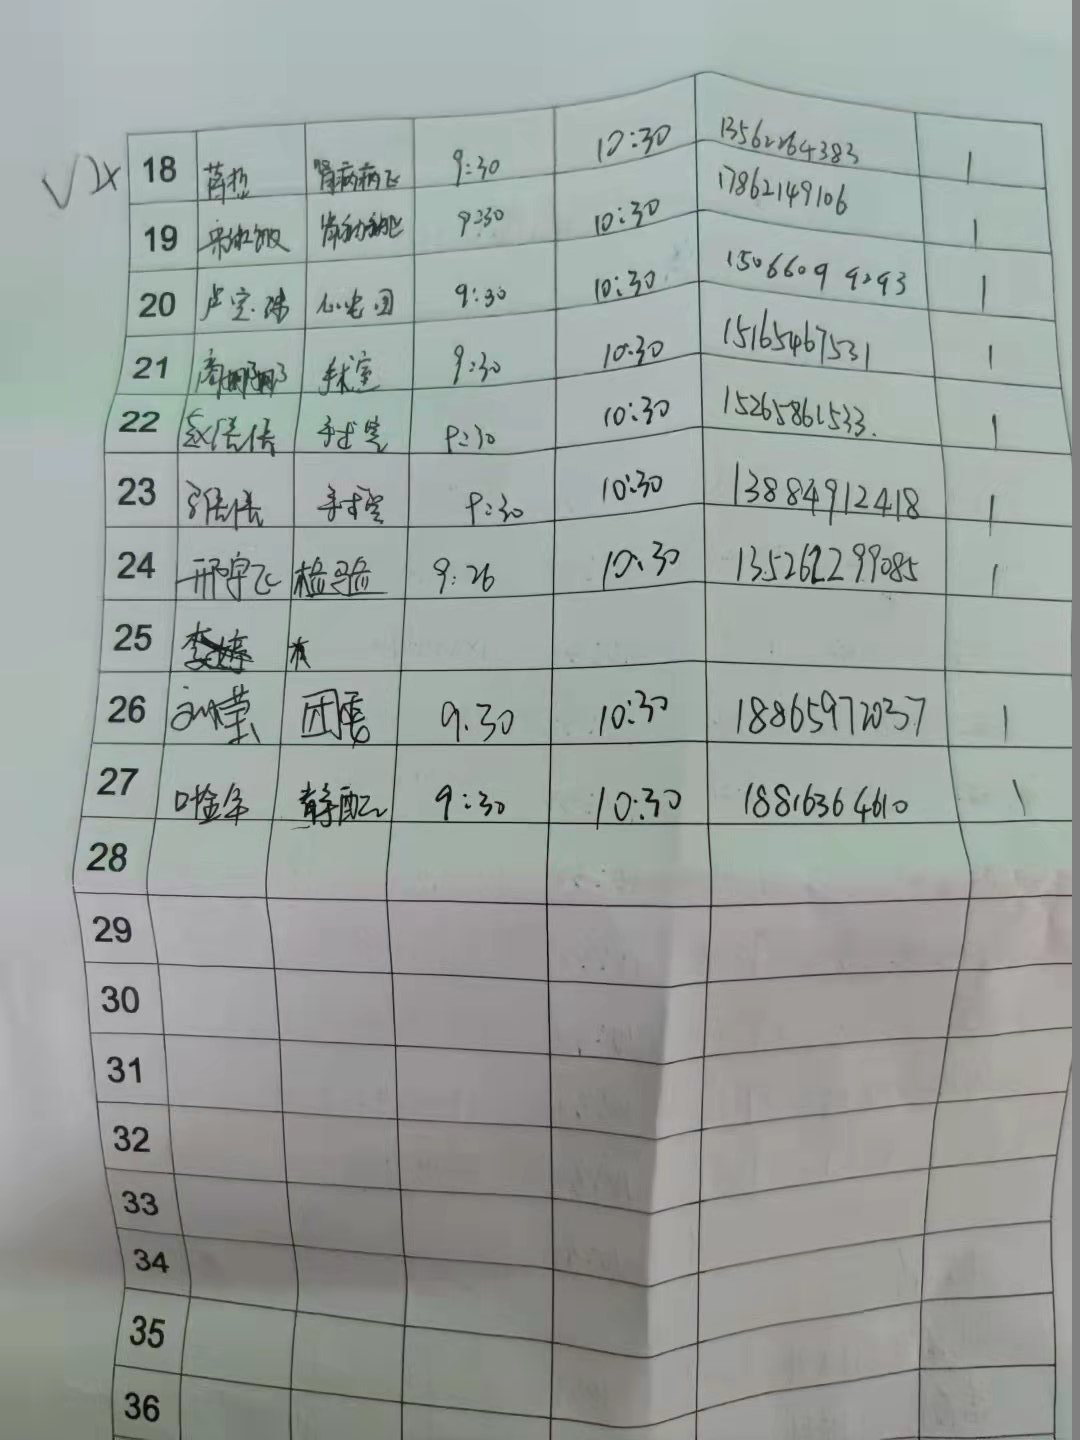 18 9:30 10:30 13562264383 1
19 9:30 10:30 17862149106 1
20 卢宝 心电图 9:30 10:30 15066099293 1
21 商娜娜 手术室 9:30 10:30 15165467531 1
22 赵倩倩 手术室 9:30 10:30 15265861533. 1
23 倩倩 手术室 9:30 10:30 13884912418 1
24 邢宇飞 检验 9:26 10:30 13526299085 1
25 李婷
26 刘莹 团委 9.30 10:30 18865972037 1
27 静配 9:30 10:30 18816364610 1
28
29
30
31
32
33
34
35
36